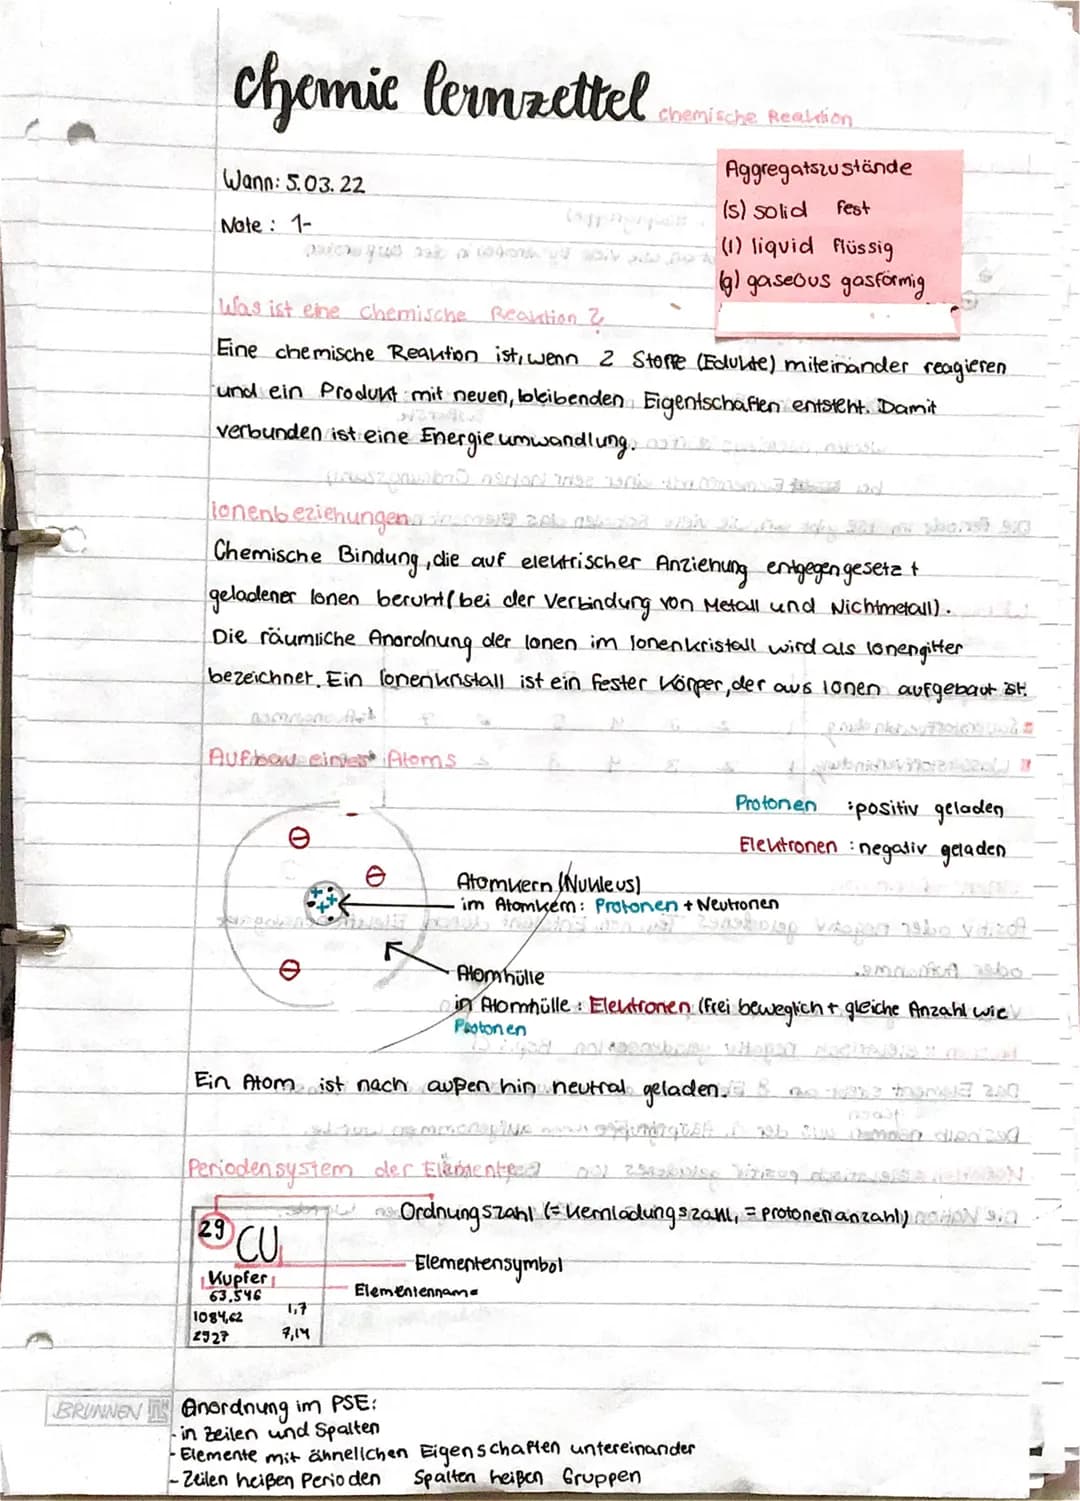 chemie lernzettel
chemische Reaktion
Wann: 5.03.22
Note: 1-
Aggregatszustände
(s) solid fest
(l) liquid flüssig
(g) gaseous gasförmig
Was ist eine chemische Reaktion?
Eine chemische Reaktion ist, wenn 2 Stoffe (Edukte) miteinander reagieren
und ein Produkt mit neuen, bleibenden Eigentschaften entsteht. Damit
verbunden ist eine Energieumwandlung.
Ionenbeziehungen
Chemische Bindung, die auf elektrischer Anziehung entgegengesetzt
geladener Ionen beruht (bei der Verbindung von Metall und Nichtmetall).
Die räumliche Anordnung der Ionen im Ionenkristall wird als Ionengitter
bezeichnet. Ein Ionenkristall ist ein fester Körper, der aus Ionen aufgebaut ist.
Aufbau eines Atoms
Protonen : positiv geladen
Elektronen : negativ geladen
Atomkern (Nukleus)
im Atomkern: Protonen + Neutronen
Atomhülle
in Atomhülle: Elektronen (frei beweglich + gleiche Anzahl wie
Protonen
Ein Atom ist nach außen hin neutral geladen.
Periodensystem der Elemente
Ordnungszahl (= Kernladungszahl, = protonenanzahl)
29 CU
Elementensymbol
Kupfer
Elementenname
63,546
1084,62 1,7
2927 7,14
BRUNNEN
Anordnung im PSE:
- in Zeilen und Spalten
- Elemente mit ähnelichen Eigenschaften untereinander
- Zeilen heißen Perioden Spalten heißen Gruppen